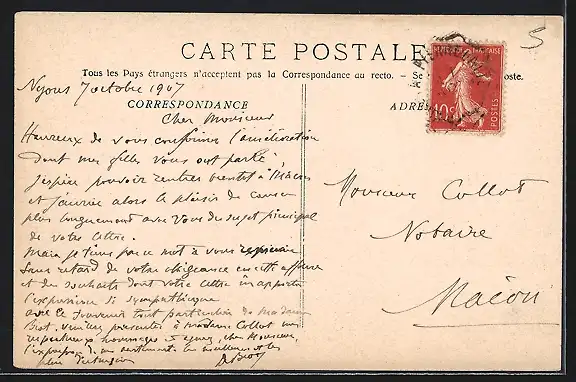 CARTE POSTALE
Tous les Pays étrangers n'acceptent pas la Correspondance au recto. — Se
oste.
CORRESPONDANCE
ADRE
RÉPUBLIQUE FRANÇAISE
10c
POSTES
5
Nyons 7 octobre 1907
Cher Monsieur
Heureux de vous confirmer l'amélioration
dont ma fille vous ont parlé,
j'espère pouvoir rentrer bientôt à Mâcon
et j'aurai alors le plaisir de causer
plus longuement avec vous du sujet principal
de votre lettre.
Mais je tiens par ce mot à vous
sans retard de votre obligeance en cette affaire
et des souhaits dont votre lettre m'apporte
l'expression si sympathique
avec le souvenir tout particulier de Madame
veuillez présenter à Madame Collot mes
respectueux hommages et agréez, cher Monsieur,
l'expression de mes sentiments les meilleurs et les
plus
Monsieur Collot
Notaire
Mâcon